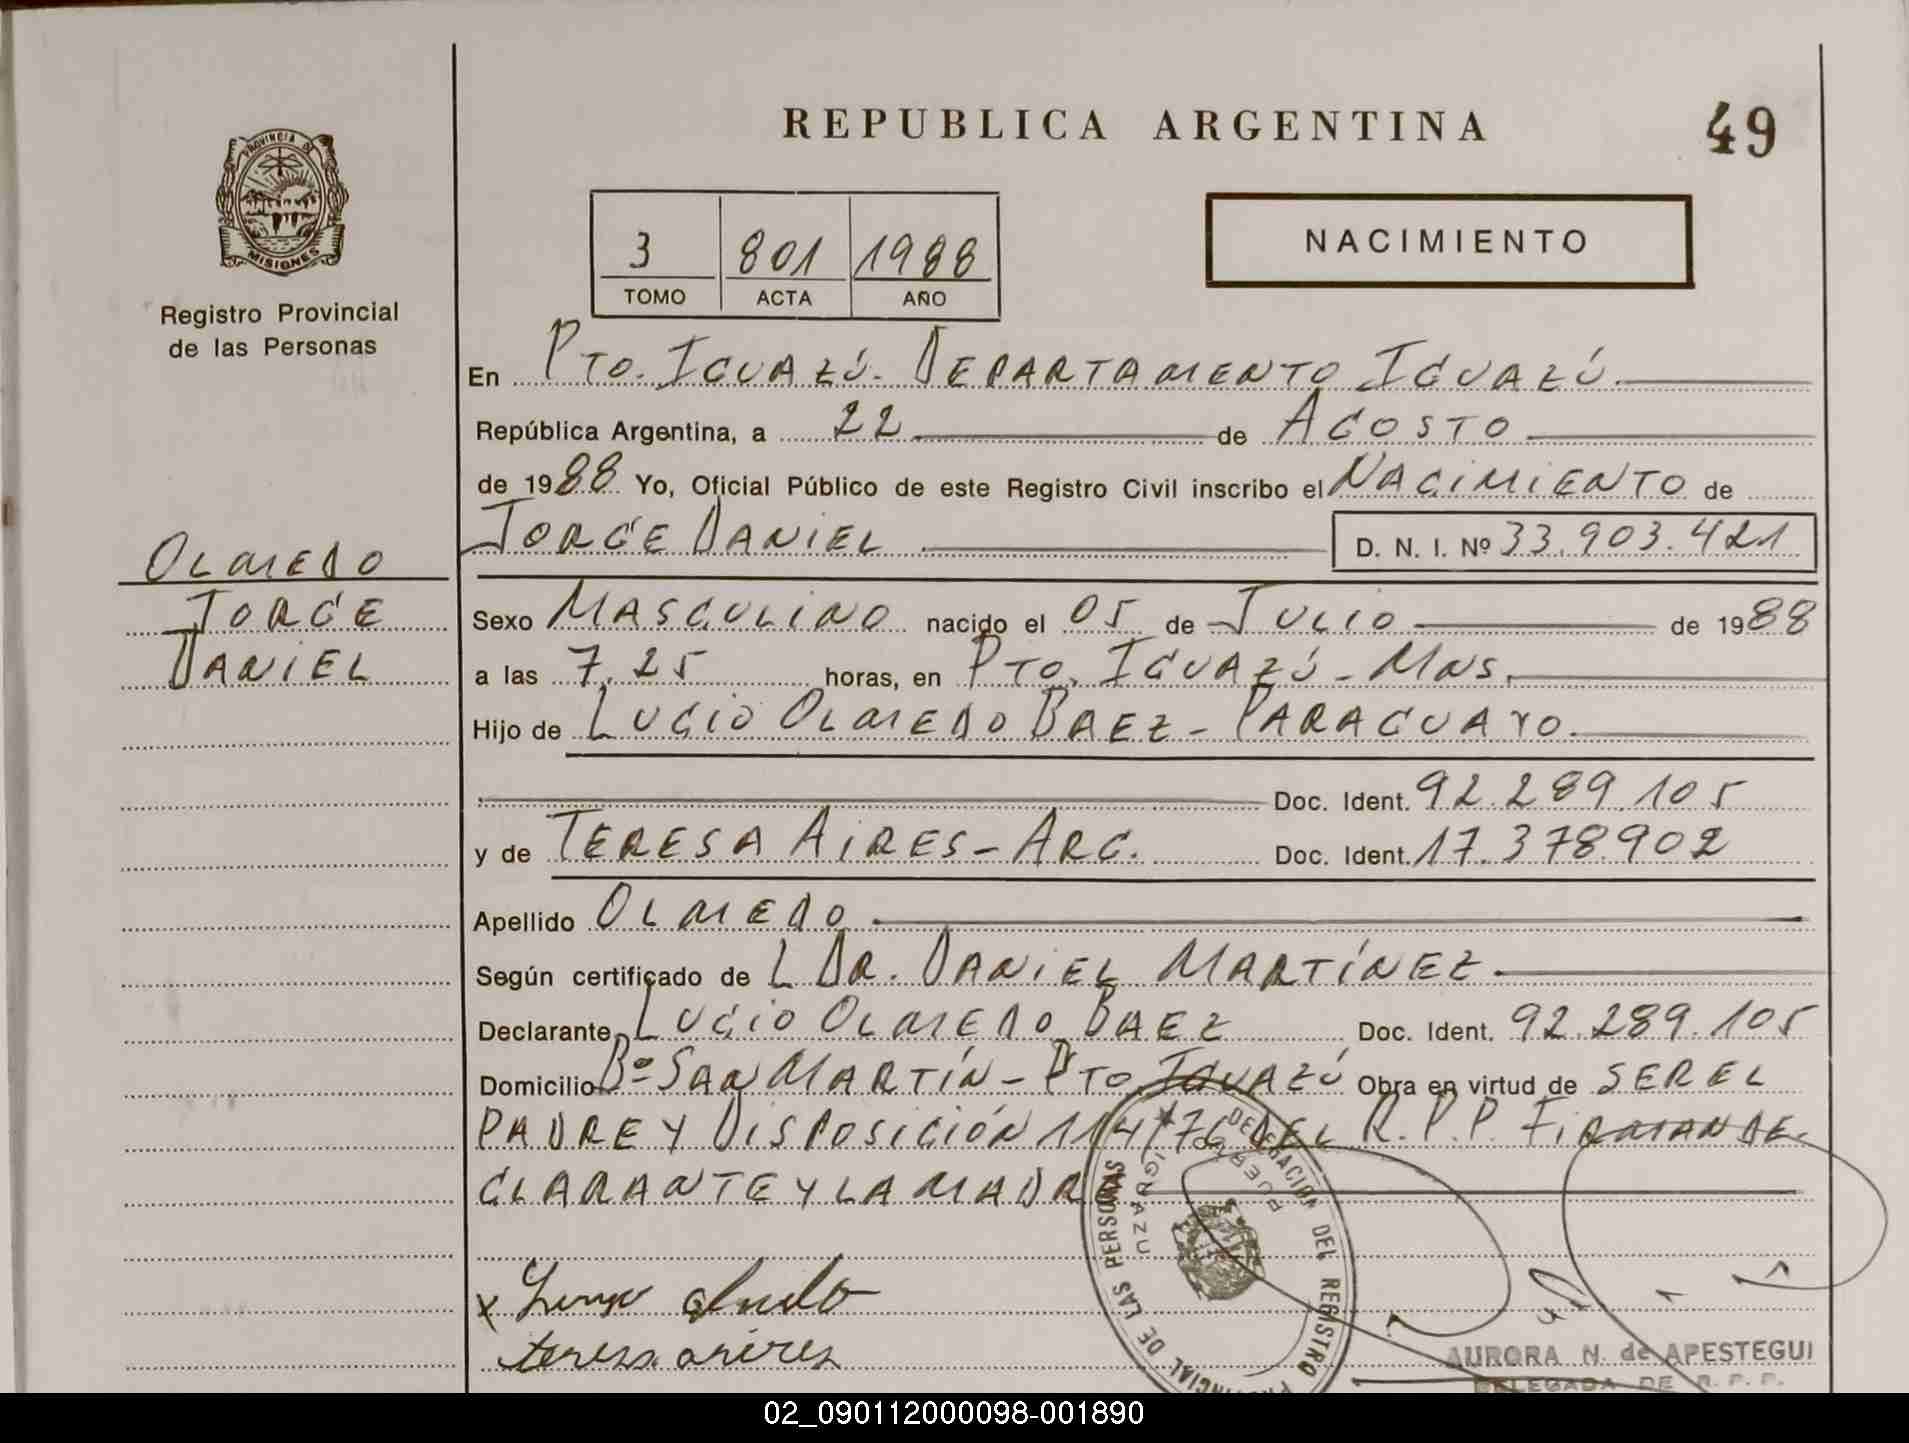 REPUBLICA ARGENTINA
49
PROVINCIA DE
MISIONES
Registro Provincial
de las Personas
3 801 1988
TOMO ACTA AÑO
NACIMIENTO
En PTO. IGUAZÚ. DEPARTAMENTO IGUAZÚ
República Argentina, a 22 de AGOSTO
de 1988 Yo, Oficial Público de este Registro Civil inscribo el NACIMIENTO de
JORGE DANIEL D. N. I. Nº 33.903.421
OLMEDO
JORGE
DANIEL
Sexo MASCULINO nacido el 05 de JULIO de 1988
a las 7.25 horas, en PTO. IGUAZÚ - MNS.
Hijo de LUCIO OLMEDO BAEZ - PARAGUAYO.
Doc. Ident. 92.289.105
y de TERESA AIRES - ARG. Doc. Ident. 17.378.902
Apellido OLMEDO
Según certificado de L DR. DANIEL MARTÍNEZ
Declarante LUCIO OLMEDO BAEZ Doc. Ident. 92.289.105
Domicilio Bº SAN MARTÍN - PTO. IGUAZÚ Obra en virtud de SER EL
PADRE Y DISPOSICIÓN 114/76 DEL R.P.P. FIRMAN DE-
CLARANTE Y LA MADRE
DELEGACION DEL REGISTRO PROVINCIAL DE LAS PERSONAS
PUERTO IGUAZU
teresa aires
AURORA N. de APESTEGUI
DELEGADA DE R. P. P.
02_090112000098-001890